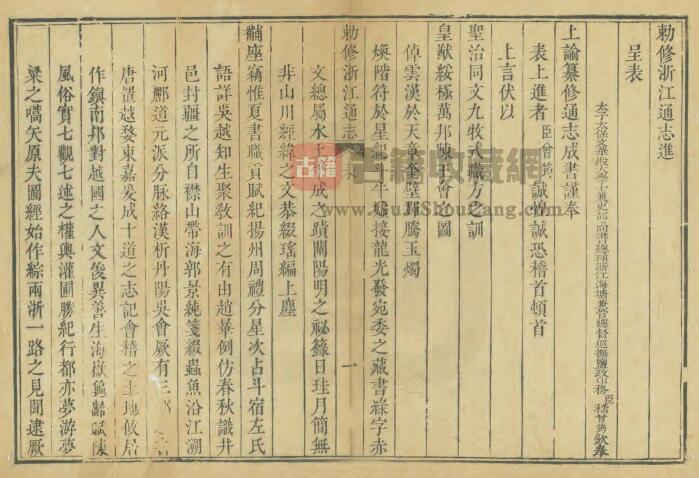 勅修浙江通志進
呈表
太子太保文華殿大學士兼吏部尚書總理浙江海塘兼管總督巡撫鹽政印務臣嵇曾筠欽奉
上諭纂修通志成書謹奉
表上進者臣曾筠誠惶誠恐稽首頓首
上言伏以
聖治同文九牧式職方之訓
皇猷綏極萬邦陳王會之圖
倬雲漢於天章奎壁輝騰玉燭
煥階符於星紀斗牛墟接龍光發宛委之藏書綠字赤
勅修浙江通志 表 一
文總屬水土平成之蹟闡陽明之祕籙日珪月簡無
非山川經緯之文恭綴瑤編上塵
黼座竊惟夏書職貢賦紀揚州周禮分星次占斗宿左氏
語詳吳越知生聚敎訓之有由趙曄例仿春秋識井
邑封疆之所自襟山帶海郭景純箋綴蟲魚沿江溯
河酈道元派分脉絡漢析丹陽吳會厥有三
唐置越婺東嘉爰成十道之志記會稽之土地攸居
作鎮南邦對越國之人文俊異善生海嶽龜齡賦陳
風俗實七觀七述之權輿灌圃勝紀行都亦夢游夢
粱之嚆矢原夫圖經始作綜兩浙一路之見聞逮厥
古籍收藏网
www.GujiShouCang.com